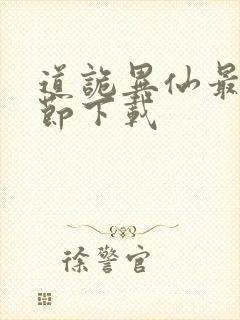 道詭異仙最
節下載
徐警官